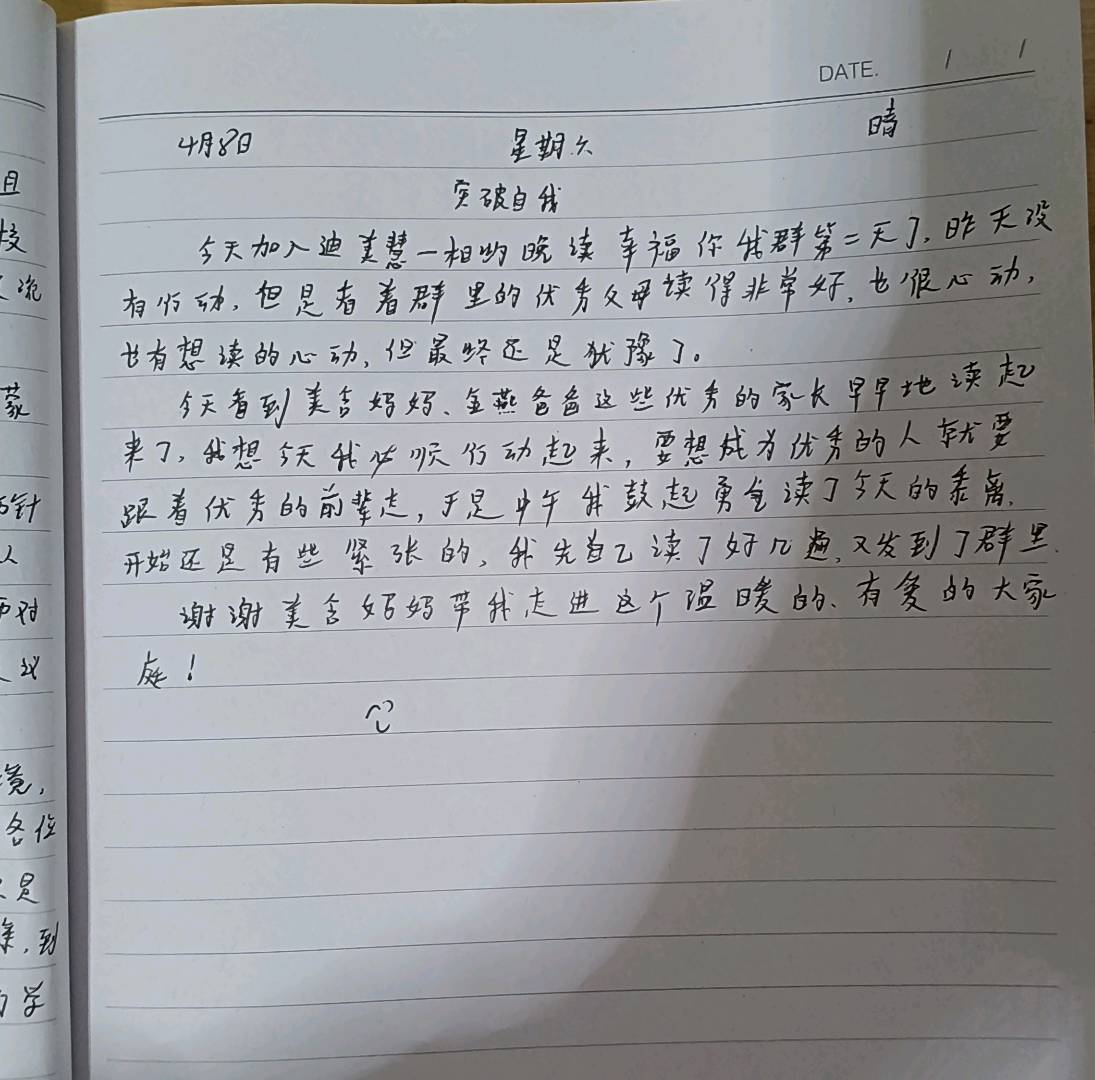 DATE. / /
4月8日 星期六 晴
突破自我
今天加入迪美慧一相约晚读幸福你我群第二天了,昨天没
有行动,但是看着群里的优秀父母读得非常好,也很心动,
也有想读的心动,但最终还是犹豫了。
今天看到美含妈妈、金燕爸爸这些优秀的家长早早地读起
来了,我想今天我必须行动起来,要想成为优秀的人就要
跟着优秀的前辈走,于是中午我鼓起勇气读了今天的黍离,
开始还是有些紧张的,我先自己读了好几遍,又发到了群里.
谢谢美含妈妈带我走进这个温暖的、有爱的大家
庭!
且
校
况
蒙
针
人
对
议
竟,
各位
是
,到
学